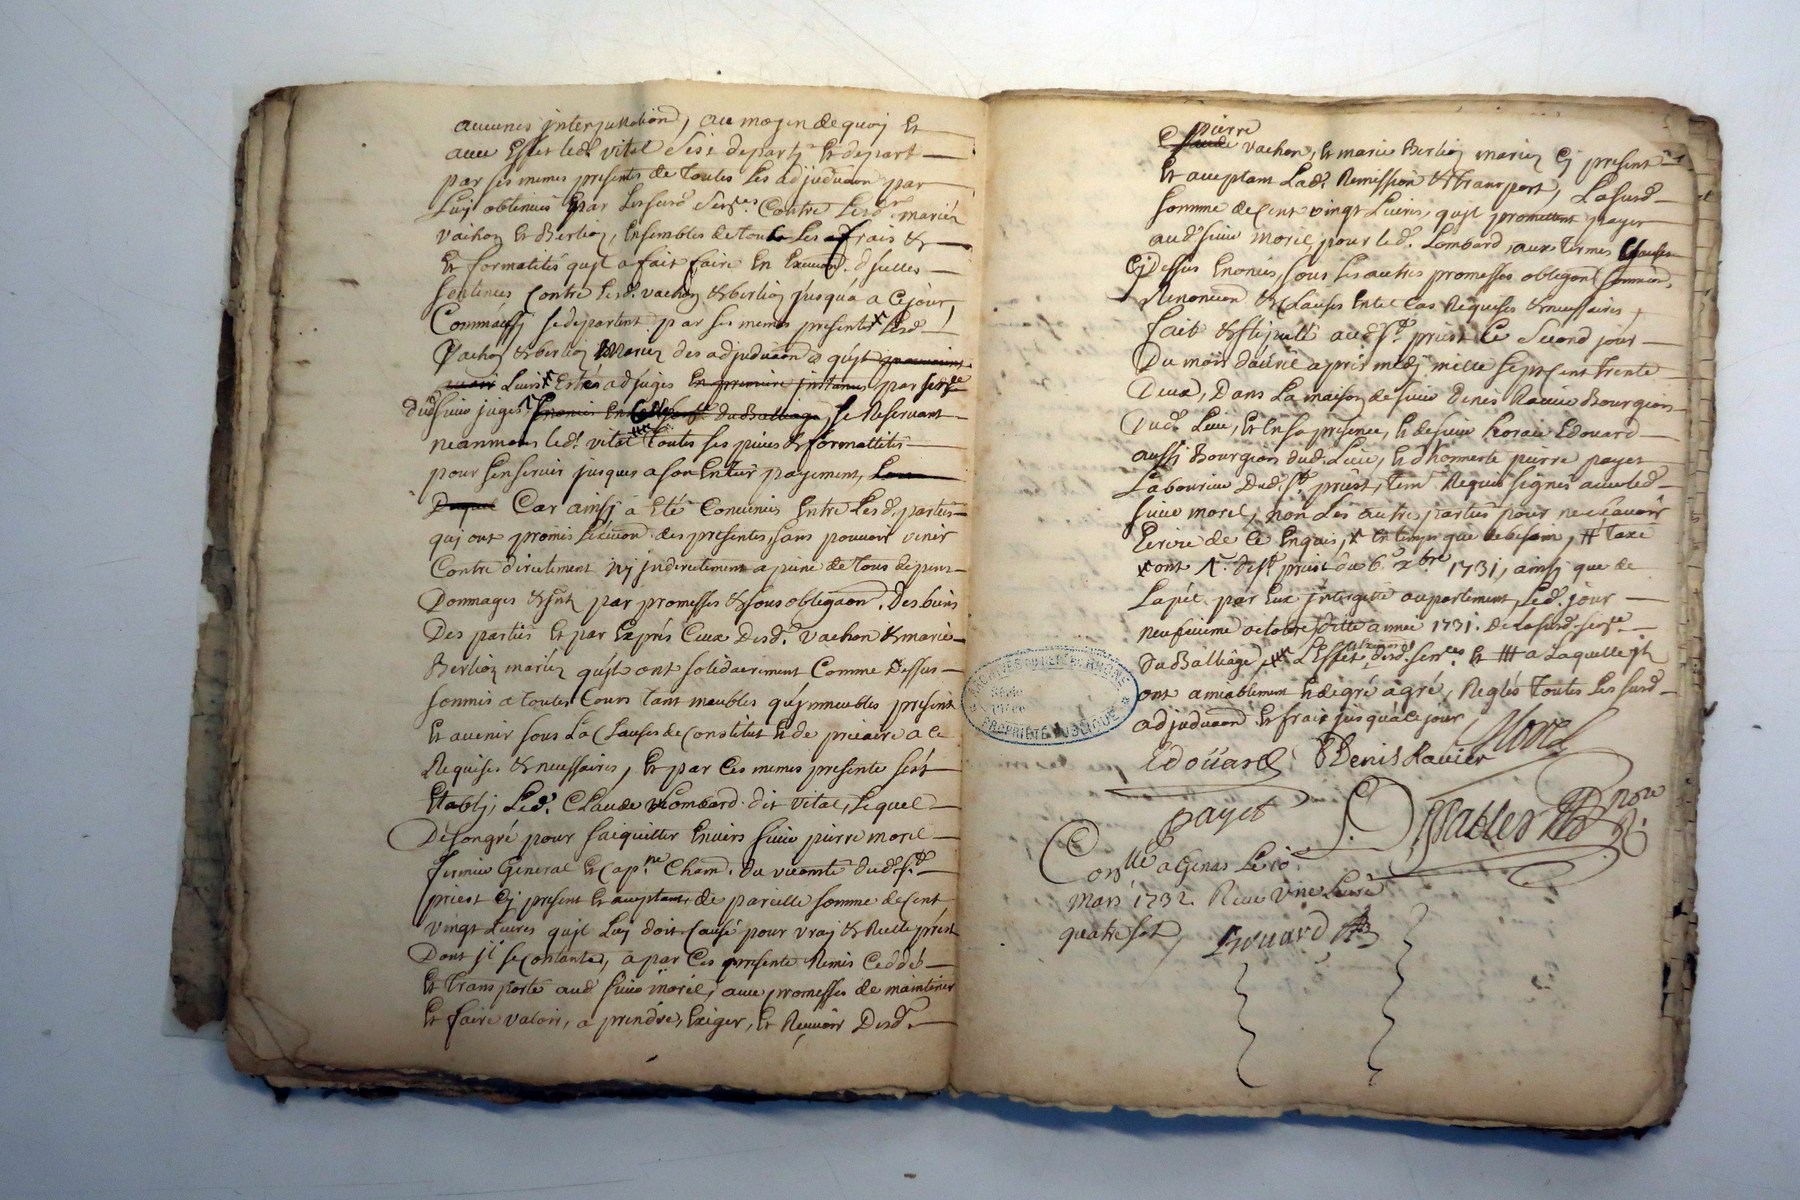 aucunes interjettation, au moyen de quoy Et
avec Effet led. vital s'est departy Et depart
par ses memes presentes de Toutes Les adjudicaon par
Luy obtenues par Lessusd. Sences Contre Lesd. mariés
Vachon Et Berlioz, Ensembles de toute Les frais &
Et formalités qu'jl a fait faire En Execuon d'jcelles
sentences Contre Lesd. vachon & berlioz jusqu'a a Ce jour,
Commaussy se departent par ses memes presentes Lesd.
Vachon & berlioz Mariez des adjudicaon qu'jl
Luirs Estés adjugés En premiere jnstance par sence
dud. sieur juge, du Balliage, se Reservant
neanmons led. vital Toutes ses pieces & formallités
pour s'en servir jusques a son Entier payement,
Car ainsy à Eté Convenus Entre Lesd. parties
quj ont promis L'execuon des presentes, sans pouvoir venir
Contre directement Nj jndirectement a peine de Tous depens
Dommages & jnts par promesses & sous obligaon. Des biens
Des parties Et par Exprés Ceux Desd. Vachon & marie
Berlioz mariez qu'jls ont solidairement Comme Dessus
soumis a toutes Cours tant meubles qu'jmmeubles presents
Et avenir sous La Clauses de Constitut Et de precaire a ce
Requises & necessaires, Et par Ces memes presente s'est
Etably, Led. Claude Lombard dit vital, Lequel
De son gré pour s'aiquitter Envers sieur pierre morel
fermier General Et Capne Cham. du vicomté dud. St.
priest Cj present Et acceptant, de pareille somme de Cent
vingt Livres qu'jl Luy doit Causé pour vray & Reelle prest
Dont jl se contante, à par Ces presente Remis Ceddé
Et transporté aud. sieur morel, avec promesses de maintenir
Et faire valoir, a prendre, Exiger, Et Recevoir Desd.
pierre
Claude vachon, Et marie Berlioz mariez Cj present
Et acceptant Lad. Remission & transport, La susd.
somme de Cent vingt Livres, qu'jl promettent payer
aud. sieur morel, pour led. Lombard, aux Termes Clauses
Cj Dessus Enoncés, sous Les autres promesses obligaon soumisn,
Renonciaon & Clauses En tel Cas Requises & necessaires,
fait & stipullé aud. St. priest Ce second jour
Du mois d'avril apres midy mille sept Cent Trente
Deux, Dans La maison de sieur Denis Ravier Bourgeois
Dud. Lieu, Et En sa presence, & de sieur horace Edouard
aussy Bourgeois dud. Lieu, Et d'honneste pierre payet
Laboureur Dud. St. priest, tem. Requis signés avec led.
sieur morel, non Les autres parties pour ne scavoir
Ecrire de Ce Enquis, Et temps que de besoin, # taxe
ont de St. priest du 6. xbre 1731, ainsy que de
L'apel par Eux jnterjetté au parlement, Led. jour
neufvieme octobre ditte année 1731. De la susd. sence
du Balliâge, L'Effet desd. sences Et a Laquelle jls
ont amiablement & de gré à gré, Reglés Toutes Les susd.
adjudicaon Et frais jusqu'a ce jour Morel
Edoüard Denis Ravier
payet
Conllé a Genas Le 10
Mars 1732. Receu Vne Livre
quatre sols,